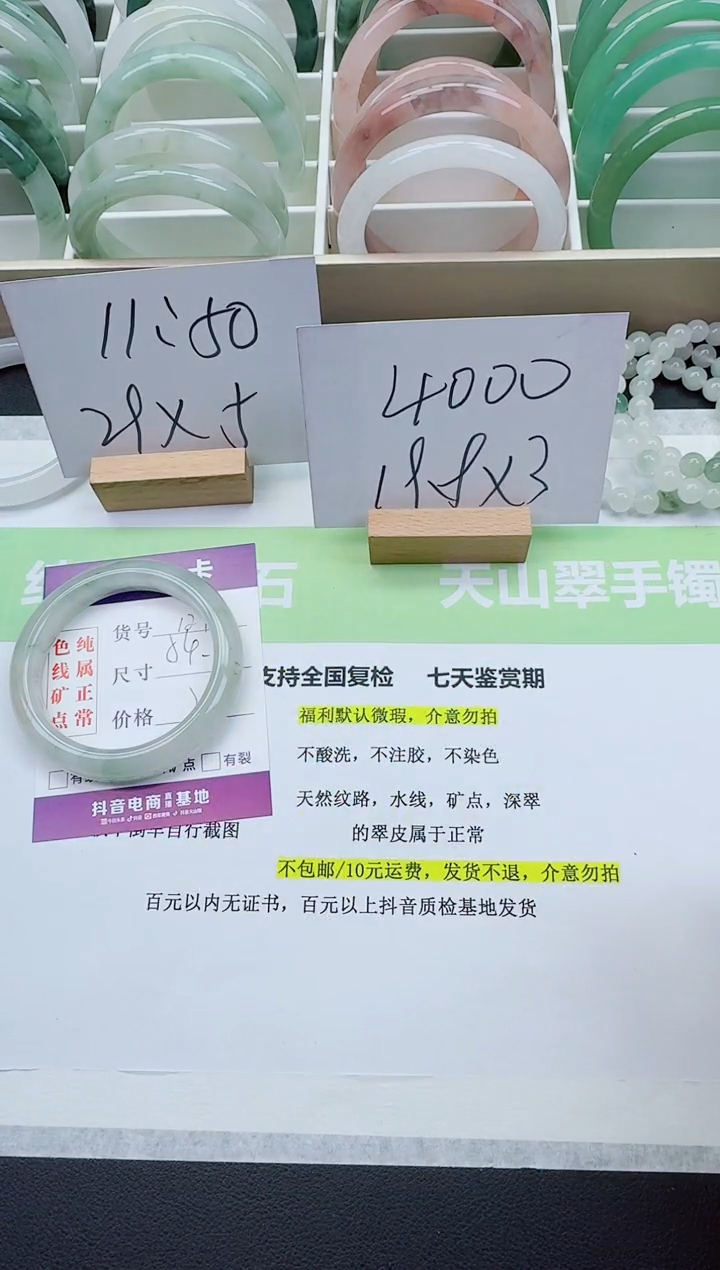 11:50
29x5
4000
199x3
石 天山翠手镯
货号
尺寸
价格
纯属正常
色线矿点
有裂
抖音电商直播基地
支持全国复检 七天鉴赏期
福利默认微瑕，介意勿拍
不酸洗，不注胶，不染色
天然纹路，水线，矿点，深翠
的翠皮属于正常
自行截图
不包邮/10元运费，发货不退，介意勿拍
百元以内无证书，百元以上抖音质检基地发货